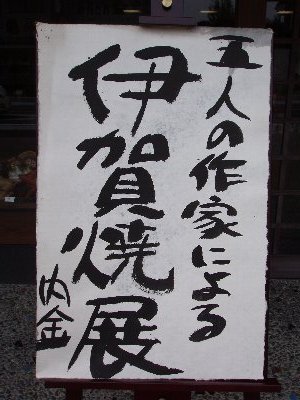 五人の作家による
伊賀焼展
内金